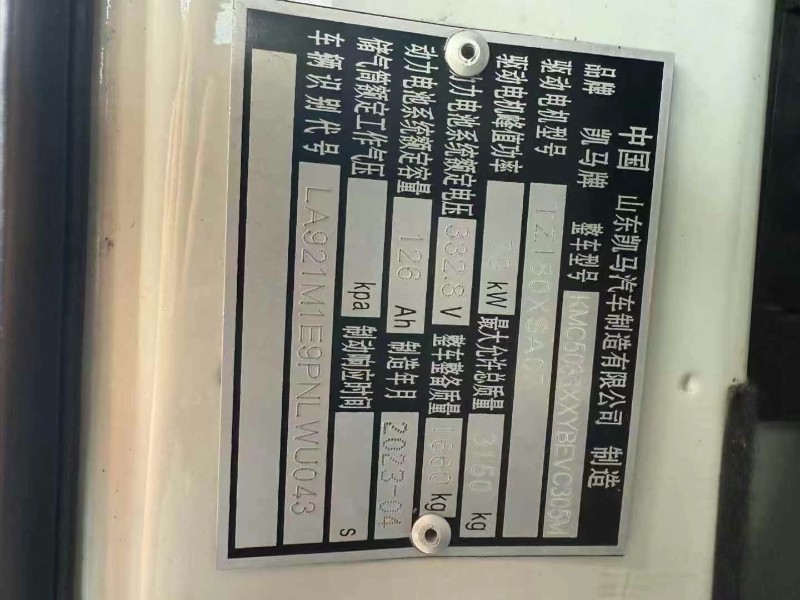 中国 山东凯马汽车制造有限公司 制造
品牌 凯马牌 整车型号 KMC5033XXYBEVC305V
驱动电机型号 TZ180XSA07
驱动电机峰值功率 70 kW 最大允许总质量 3150 kg
动力电池系统额定电压 332.8 V 整车整备质量 1660 kg
动力电池系统额定容量 126 Ah 制造年月 2023-04
储气筒额定工作气压 kpa 制动响应时间 s
车辆识别代号 LA921M1E9PNLWU043